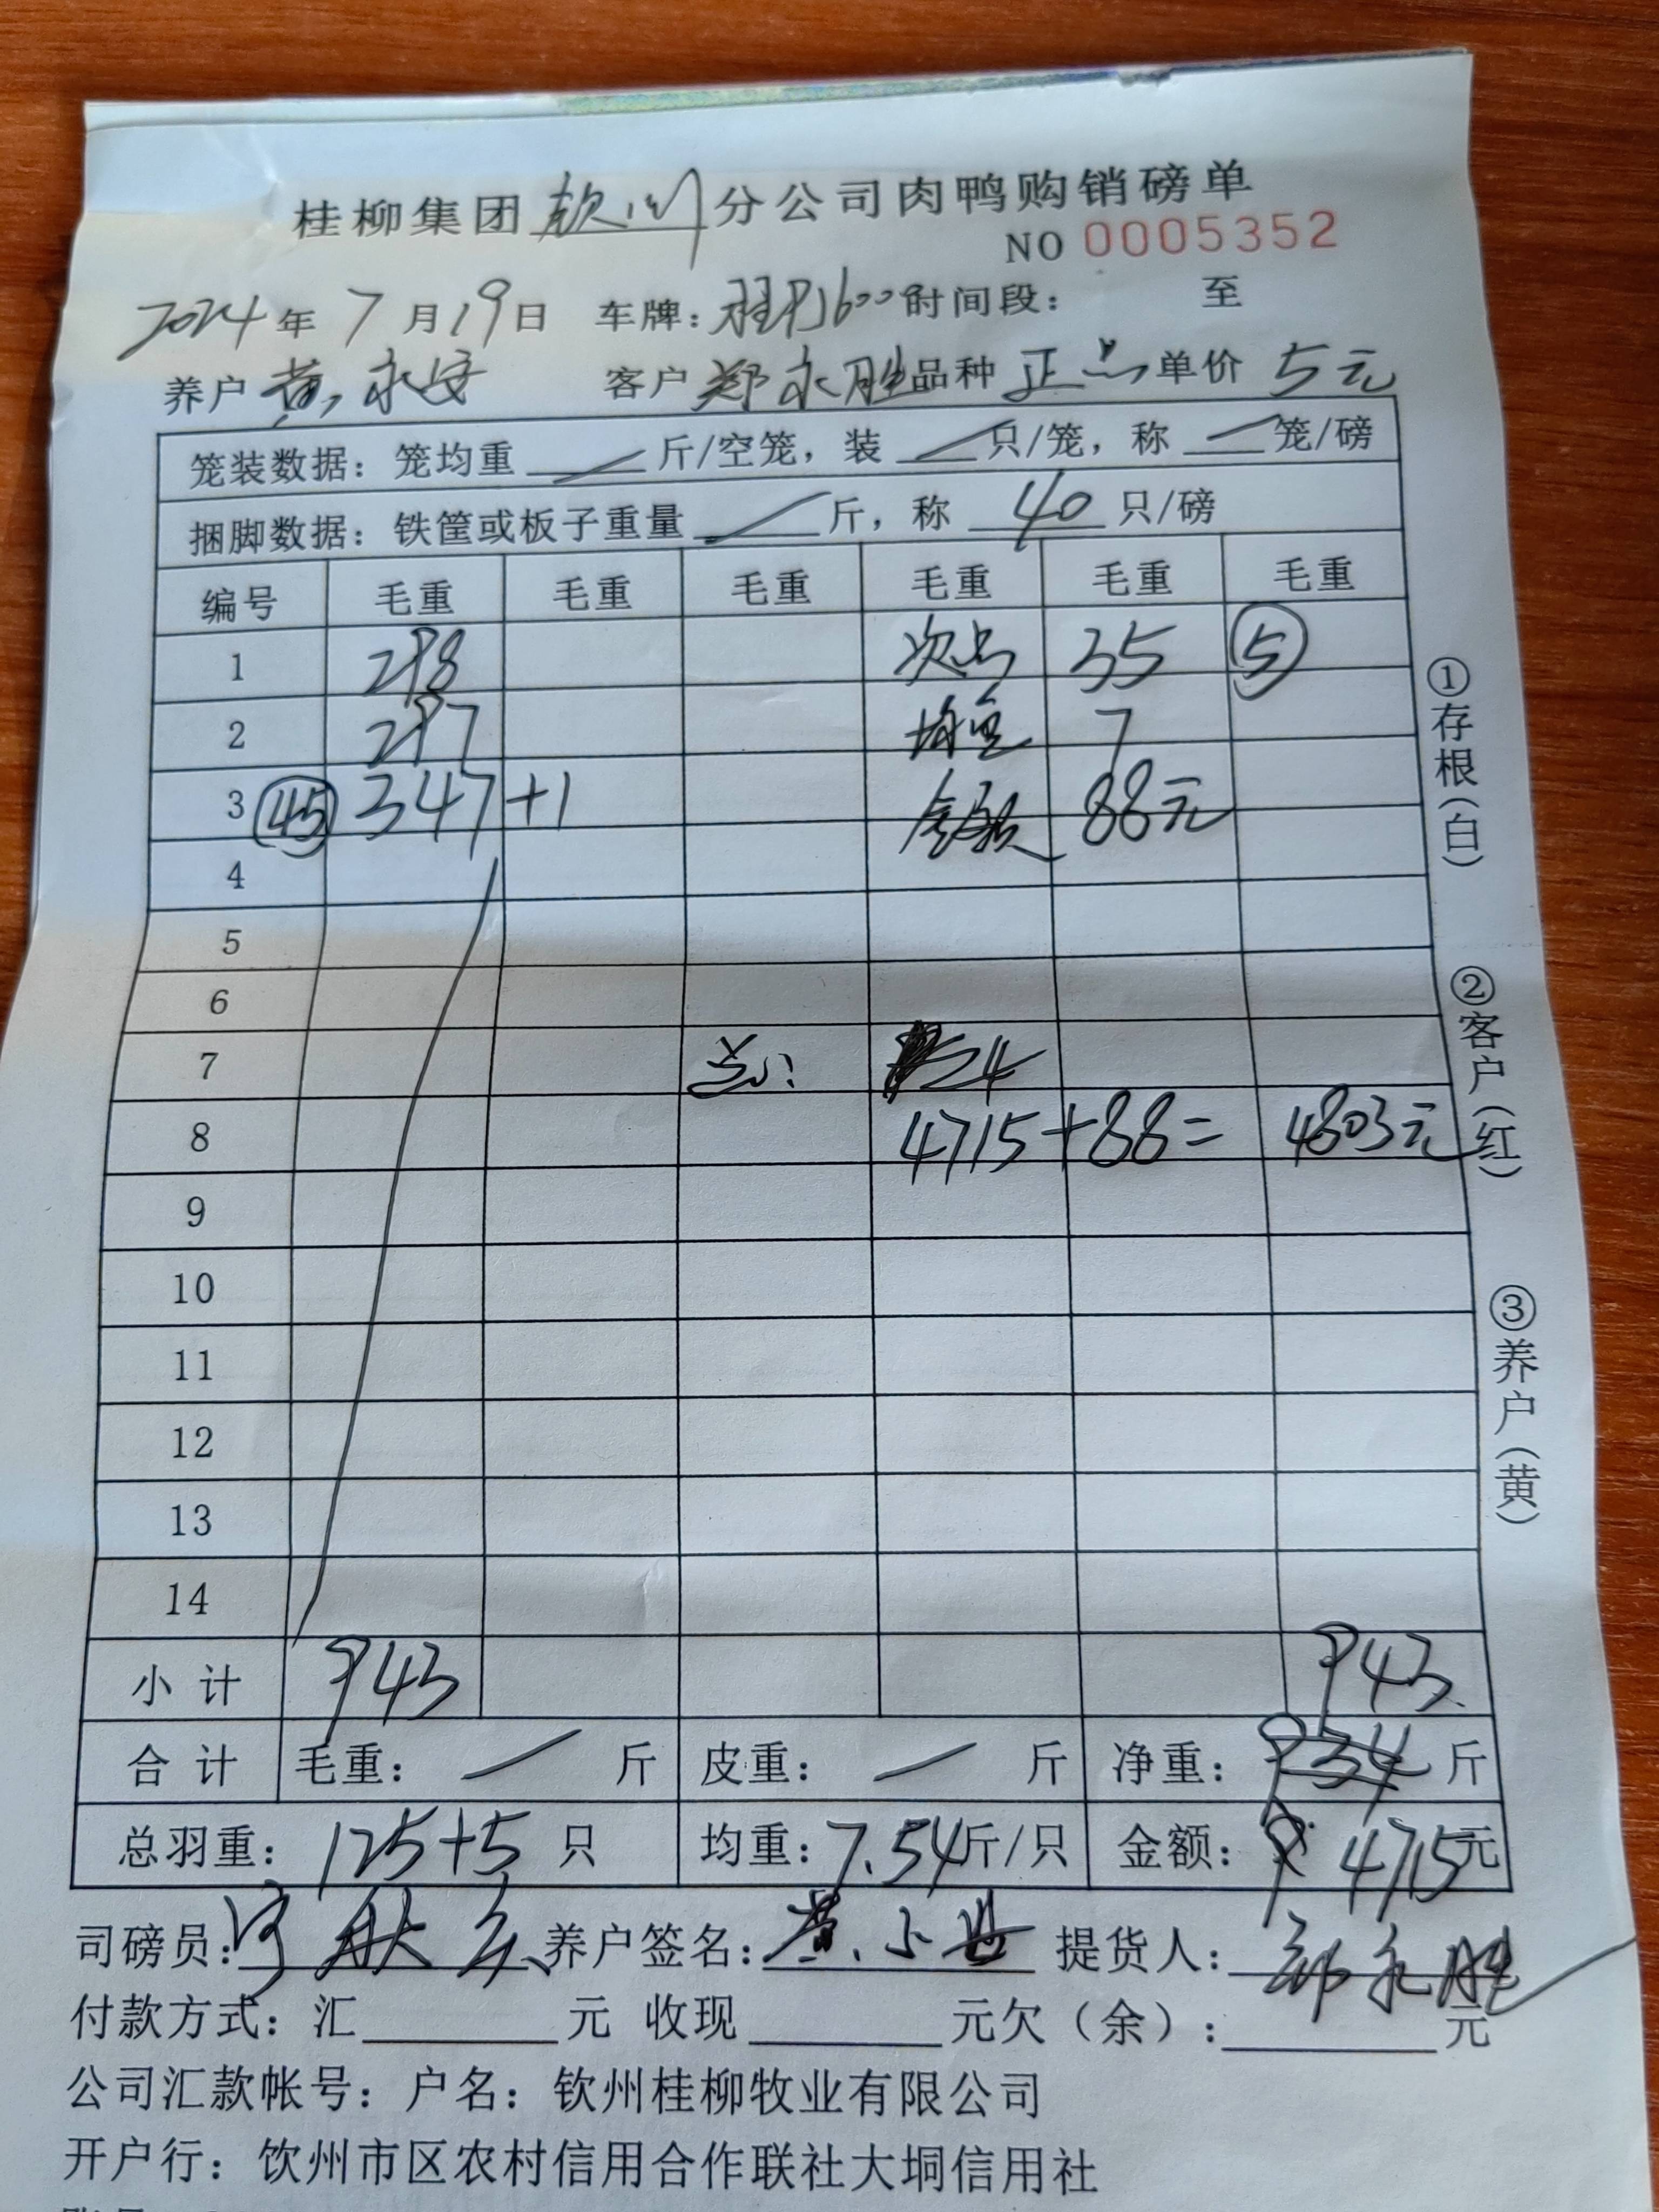 桂柳集团 钦州 分公司肉鸭购销磅单
NO 0005352
2024年 7月19日 车牌: 时间段: 至
养户 黄永安 客户 郑永胜 品种 正品 单价 5元
笼装数据: 笼均重 / 斤/空笼, 装 / 只/笼, 称 / 笼/磅
捆脚数据: 铁筐或板子重量 / 斤, 称 40 只/磅
编号 毛重 毛重 毛重 毛重 毛重 毛重
1 298 次品 35 5
2 297 均重 7
3 45 347 +1 金额 88元
4
5
6
7 24
8 4715+88= 4803元
9
10
11
12
13
14
小计 943 943
合计 毛重: / 斤 皮重: / 斤 净重: 934 斤
总羽重: 125+5 只 均重: 7.54斤/只 金额: 4715元
司磅员: 养户签名: 黄小 提货人: 郑永胜
付款方式: 汇 元 收现 元欠(余): 元
公司汇款帐号: 户名: 钦州桂柳牧业有限公司
开户行: 饮州市区农村信用合作联社大垌信用社
①存根(白)
②客户(红)
③养户(黄)